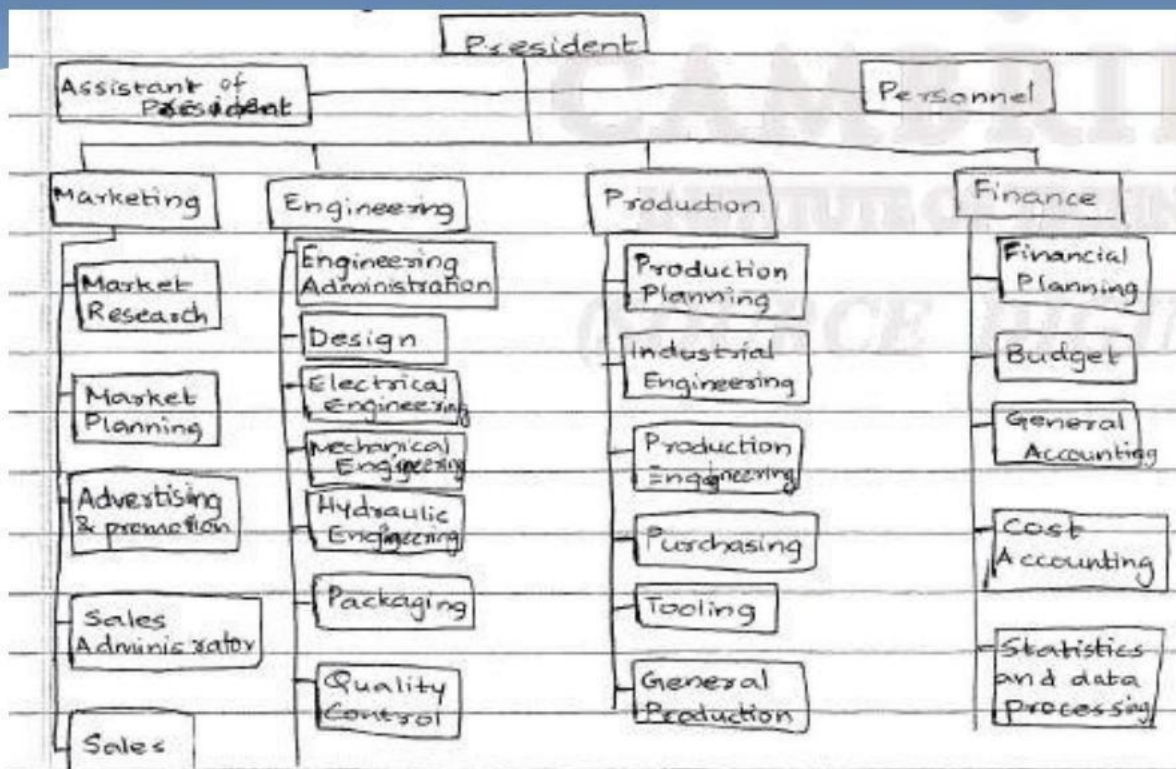 President
Assistant of
President
Personnel
Marketing
Engineering
Production
Finance
Market
Research
Market
Planning
Advertising
& promotion
Sales
Adminis rator
Sales
Engineering
Administration
Design
Electrical
Engineering
Mechanical
Engigineering
Hydraulic
Engigeering
Packaging
Quality
Control
Production
Planning
Industrial
Engineering
Production
Engqineering
Purchasing
Tooling
General
Production
Financial
Planning
Budget
General
Accounting
Cost
Accounting
Statistics
and data
processing